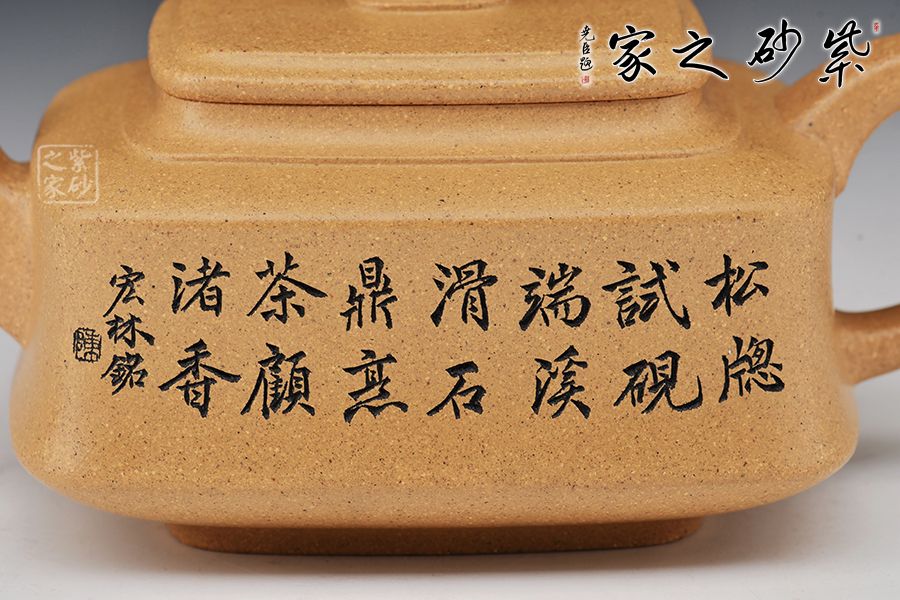 紫砂之家
堯臣題
紫砂之家
松牕
試硯
端溪
滑石
鼎烹
茶顧
渚香
宏林銘